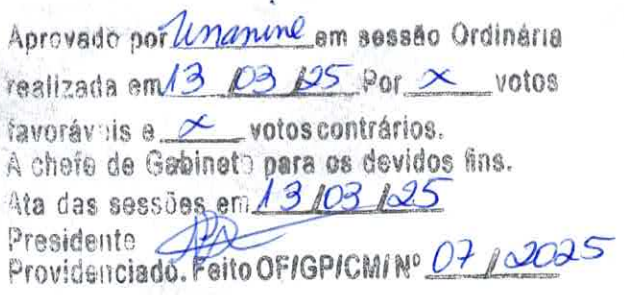 Aprovado por Unanime em sessão Ordinária
realizada em 13 / 03 / 25 Por x votos
favoráveis e x votos contrários.
A chefe de Gabinete para os devidos fins.
Ata das sessões em 13 / 03 / 25
Presidente
Providenciado. Feito OF/GP/CMI Nº 07 / 2025